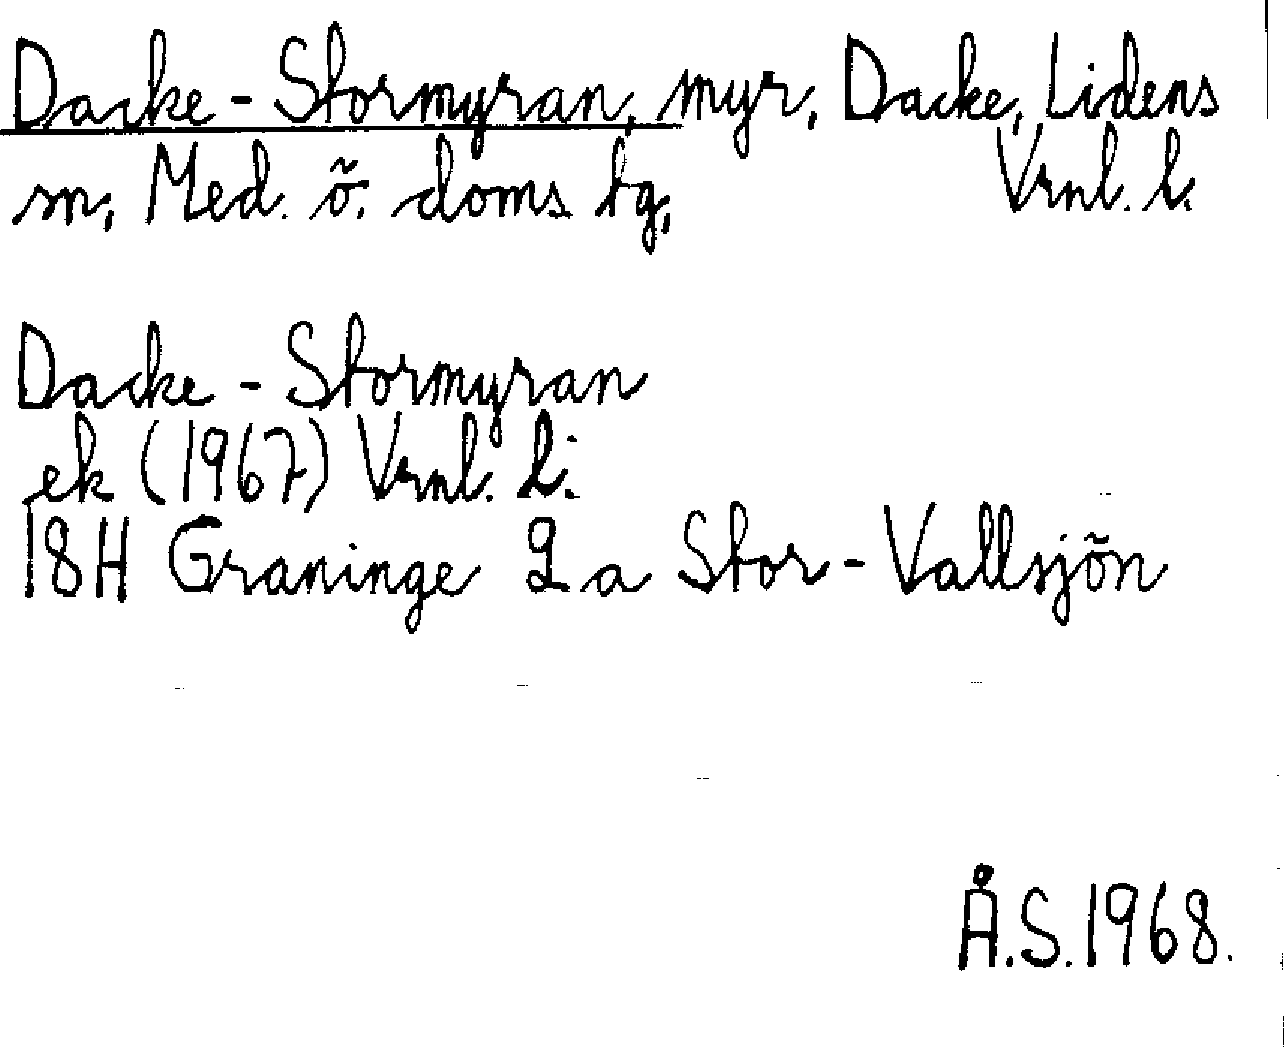 Dacke-Stormyran, myr, Dacke, Lidens
sn, Med. ö. doms tg, Vrnl. l.
Dacke-Stormyran
ek (1967) Vrnl. l.
18H Graninge 2a Stor-Vallsjön
Å.S. 1968.